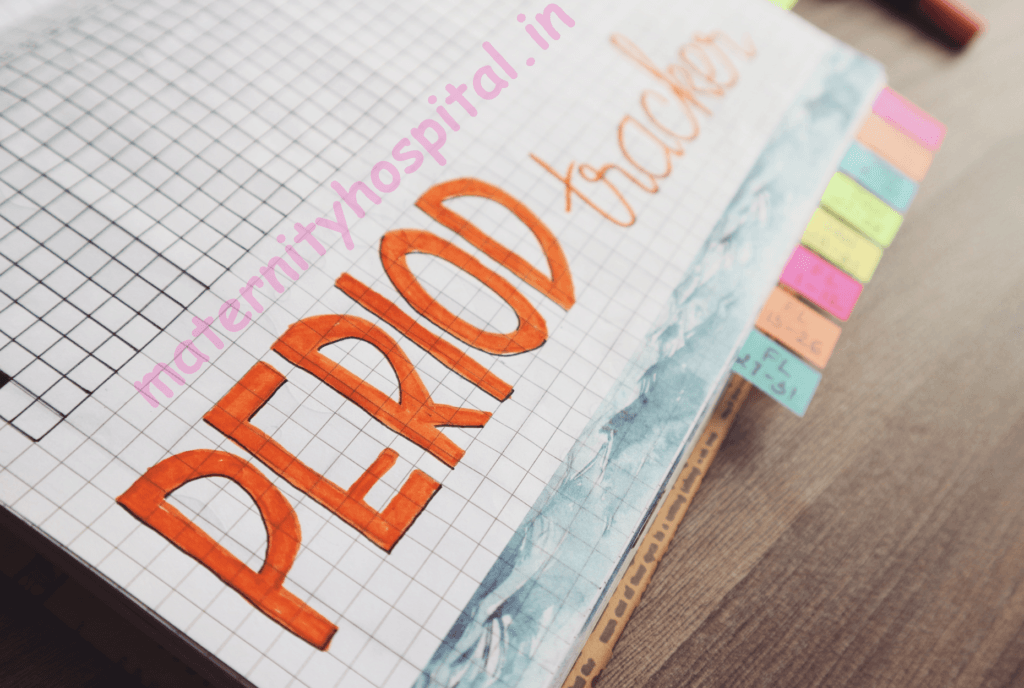 maternityhospital.in
PERIOD tracker
FL
27-31